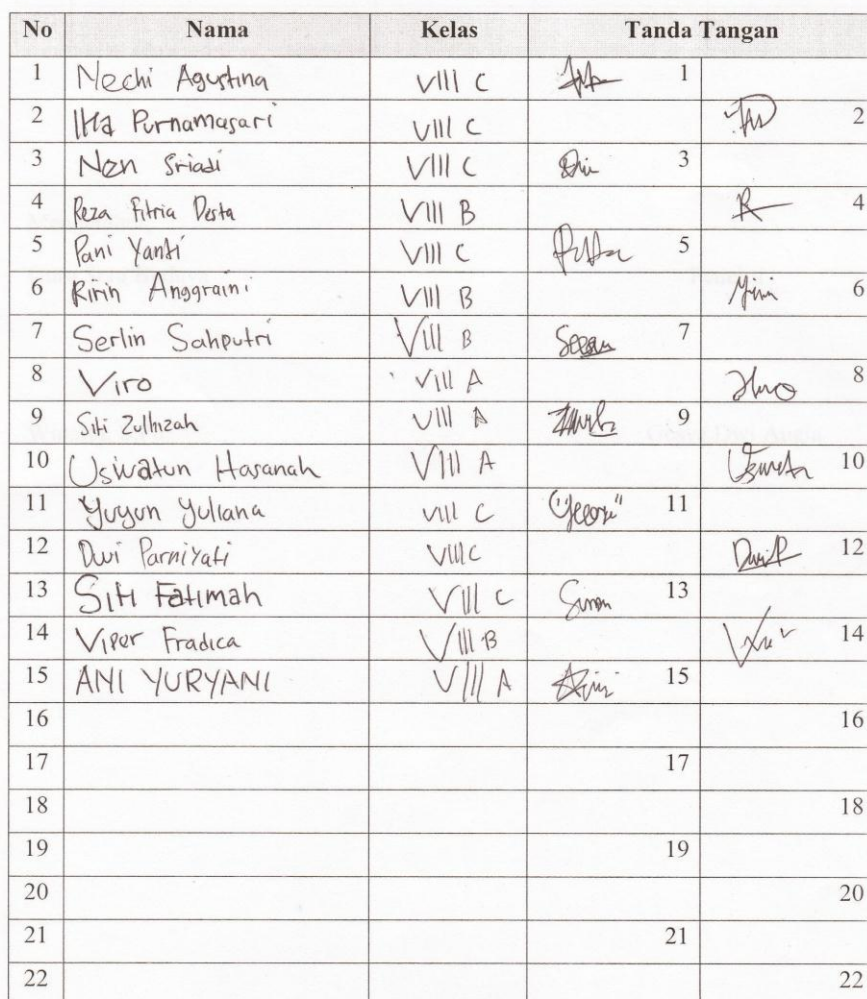 No Nama Kelas Tanda Tangan
1 Nechi Agustina VIII C 1
2 Ika Purnamasari VIII C 2
3 Nen Sriadi VIII C 3
4 Reza Fitria Desta VIII B 4
5 Pani Yanti VIII C 5
6 Ririn Anggraini VIII B 6
7 Serlin Sahputri VIII B 7
8 Viro VIII A 8
9 Siti Zulhizah VIII A 9
10 Uswatun Hasanah VIII A 10
11 Yuyun Yuliana VIII C 11
12 Dwi Parniyati VIII C Dwi P 12
13 Siti Fatimah VIII C 13
14 Viper Fradica VIII B 14
15 ANI YURYANI VIII A 15
16 16
17 17
18 18
19 19
20 20
21 21
22 22